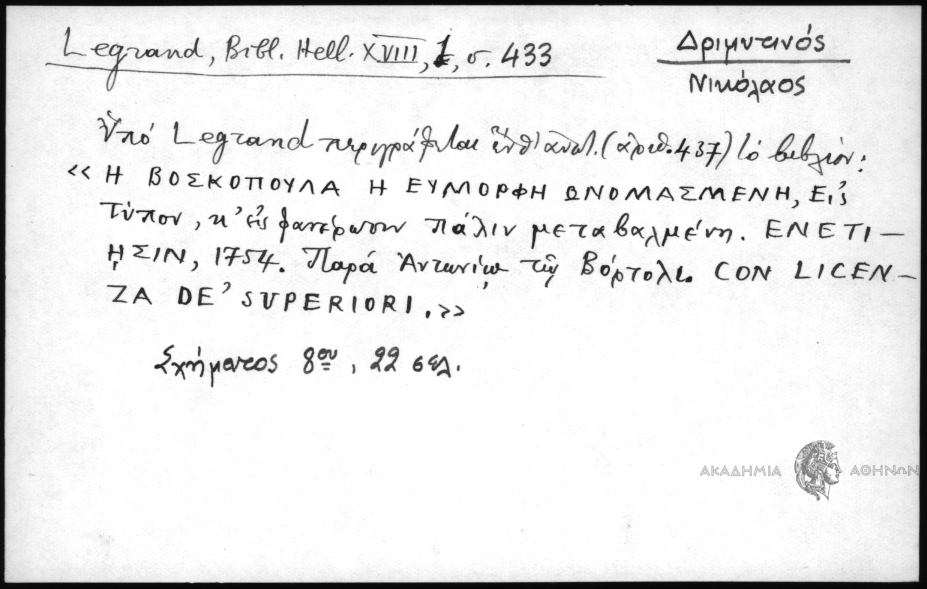 Legrand, Bibl. Hell. XVIII, 1, σ. 433
Δριμυτινός
Νικόλαος
Ὑπό Legrand περιγράφεται (ἀριθ. 437) τό βιβλίον:
« Η ΒΟΣΚΟΠΟΥΛΑ Η ΕΥΜΟΡΦΗ ΩΝΟΜΑΣΜΕΝΗ, Εἰς
τύπον, κ' εἰς φανέρωσιν πάλιν μεταβαλμένη. ΕΝΕΤΙ-
ῌΣΙΝ, 1754. Παρά Ἀντωνίῳ τῷ Βόρτολι. CON LICEN-
ZA DE' SUPERIORI. »
Σχήματος 8ου, 22 σελ.
ΑΚΑΔΗΜΙΑ ΑΘΗΝΩΝ